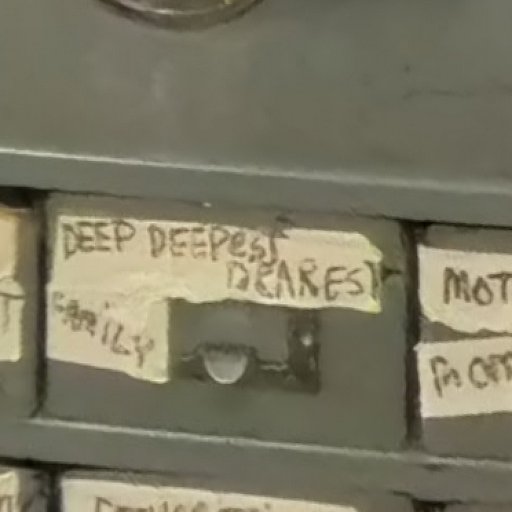 DEEP DEEPEST
DEAREST
FAMILY
MOT